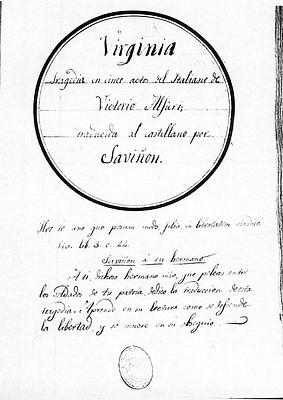 Virginia
tragedia en cinco actos del Italiano de
Victorio Alfieri,
traducida al castellano por
Saviñon.
Hoc te uno quo possum modo, filia, in libertatem vindico.
Liv. lib. 3. c. 44.
Saviñon á su hermano.
A ti, dichoso hermano mio, que peleas entre
los soldados de tu patria, dedico la traduccion de esta
tragedia. Aprende en su lectura como se defiende
la libertad y se muere en su obsequio.